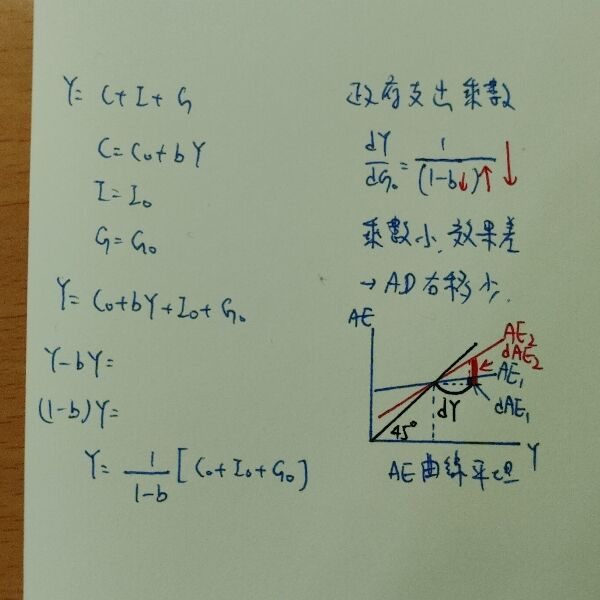 Y = C + I + G
C = C₀ + bY
I = I₀
G = G₀
Y = C₀ + bY + I₀ + G₀
Y - bY =
(1-b)Y =
Y = 1/(1-b) [C₀ + I₀ + G₀]
政府支出乘數
dY/dG₀ = 1/(1-b↓)↑ ↓
乘數小, 效果差
→ AD右移少.
AE
AE₂
dAE₂
AE₁
dAE₁
dY
45°
Y
AE曲線平坦